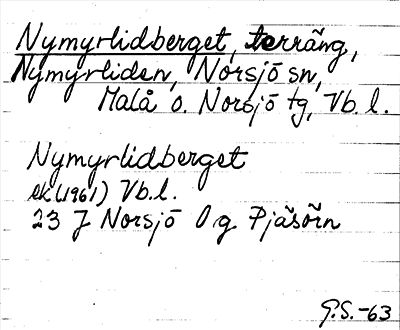 Nymyrlidberget, terräng,
Nymyrliden, Norsjö sn,
Malå o. Norsjö tg, Vb. l.
Nymyrlidberget
ek (1961) Vb. l.
23 J Norsjö 0 g Pjäsörn
G.S. -63